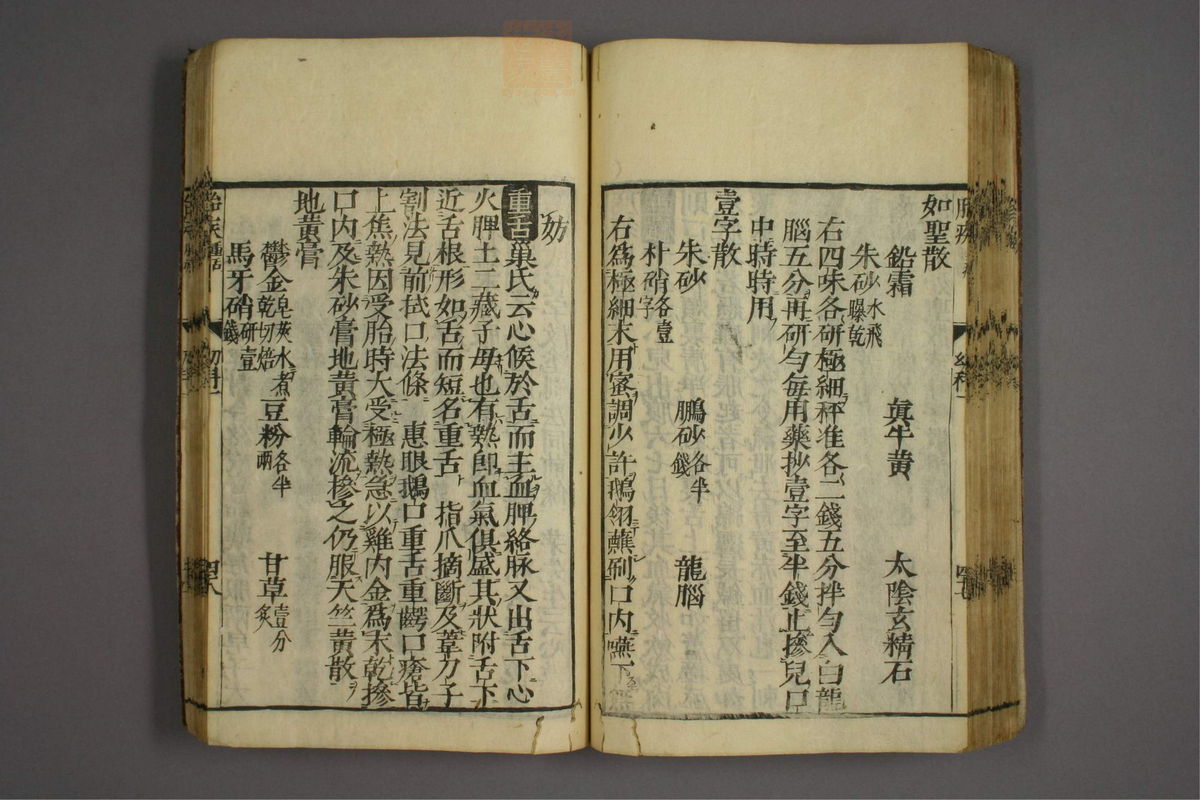 如聖散
鉛霜 眞牛黄 太陰玄精石
朱砂水飛曝乾
右四味各研極細秤准各二錢五分拌勻入白龍
腦五分再研勻每用藥抄壹字至半錢止摻兒口
中時時用
壹字散
朱砂 鵬砂各半錢 龍腦
朴硝各壹字
右爲極細末用蜜調少許鵝翎蘸刷口内嚥下無
妨
重舌巢氏云心候於舌而主血脾絡脉又出舌下心
火脾土二藏子母也有熱即血氣俱盛其狀附舌下
近舌根形如舌而短名重舌 指爪摘斷及葦刀子
割法見前拭口法條 惠眼鵝口重舌重齶口瘡皆
上焦熱因受胎時大受極熱急以雞内金爲末乾摻
口内及朱砂膏地黄膏輪流摻之仍服天竺黄散
地黄膏
鬱金皂莢水煮乾切焙 豆粉各半兩 甘草壹分炙
馬牙硝研壹錢